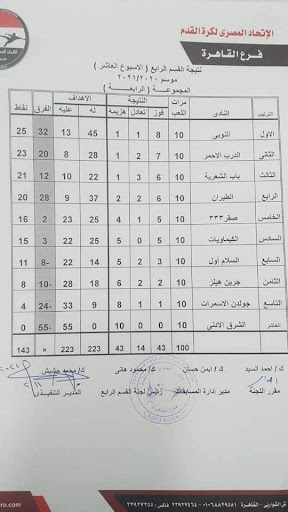 الإتحاد المصرى لكرة القدم
فرع القاهرة
نتيجة القسم الرابع ( الاسبوع العاشر )
موسم ٢٠٢١/٢٠٢٠
المجموعة ( الرابعة )
الترتيب النادى مرات اللعب النتيجة الاهداف الفرق نقاط
فوز تعادل هزيمة له عليه
الاول النوبى 10 8 1 1 45 13 32 25
الثانى الدرب الاحمر 10 7 2 1 28 8 20 23
الثالث باب الشعرية 10 6 3 1 22 10 12 21
الرابع الطيران 10 6 2 2 37 9 28 20
الخامس صقر٣٣٣ 10 5 1 4 25 23 2 16
السادس الكيماويات 10 5 0 5 25 22 3 15
السابع السلام أول 10 3 2 5 14 22 8- 11
الثامن جرين هيلز 10 2 2 6 18 28 10- 8
التاسع جولدن الاسمرات 10 1 1 8 9 33 24- 4
العاشر الشرق الادنى 10 0 0 10 0 55 55- 0
100 43 14 43 223 223 × 143
ك/ احمد السيد ك/ ايمن حسان ك/ محمود هانى ك/ محمد
مقرر اللجنة مدير إدارة المسابقات رئيس لجنة القسم الرابع المدير التنفيذى